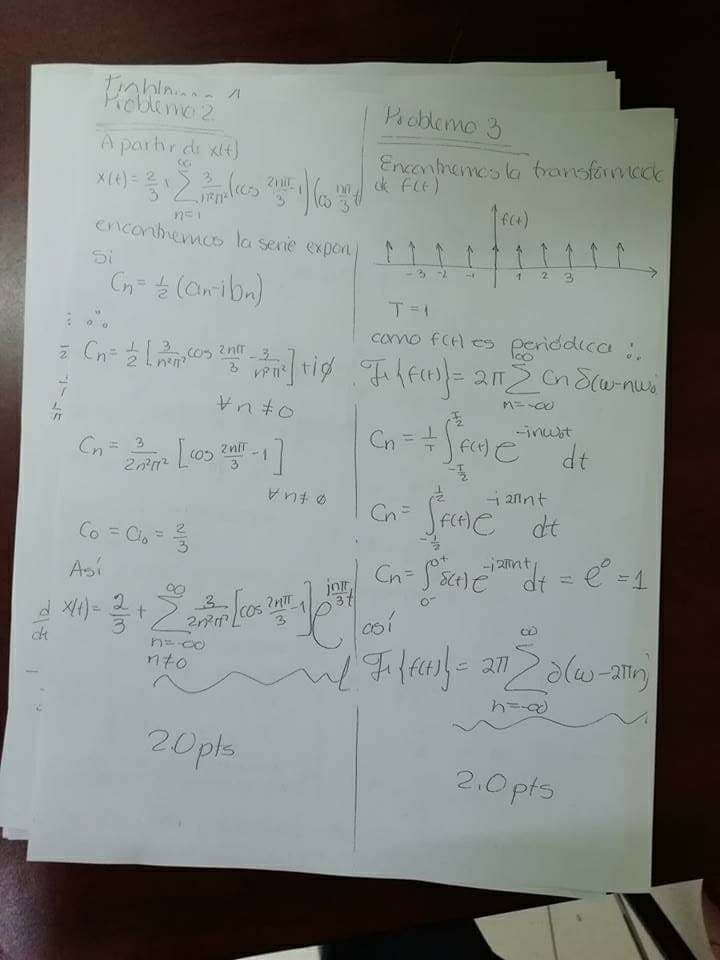 Problema 2
A partir de x(t)
x(t) = 2/3 + ∞ ∑ n=1 3/n²π² (cos 2nπ/3 - 1) (cos nπ/3 t
encontremos la serie expon
Si
Cn = 1/2 (an - ibn)
∴
Cn = 1/2 [3/n²π² cos 2nπ/3 - 3/n²π²] + iø
∀ n ≠ 0
Cn = 3/2n²π² [cos 2nπ/3 - 1]
∀ n ≠ ø
C0 = a0 = 2/3
Así
x(t) = 2/3 + ∞ ∑ n=-∞ n≠0 3/2n²π² [cos 2nπ/3 - 1] e^{jnπ/3 t}
2.0 pts
Problema 3
Encontremos la transformada
de f(t)
f(t)
-3 -2 -1 1 2 3
T = 1
como f(t) es periódica ∴
F{f(t)} = 2π ∞ ∑ n=-∞ Cn δ(ω-nω₀
Cn = 1/T ∫_{-T/2}^{T/2} f(t) e^{-inω₀t} dt
Cn = ∫_{-1/2}^{1/2} f(t) e^{-i2πnt} dt
Cn = ∫_{0-}^{0+} δ(t) e^{-j2πnt} dt = e⁰ = 1
así
F{f(t)} = 2π ∞ ∑ n=-∞ ∂(ω-2πn)
2.0 pts